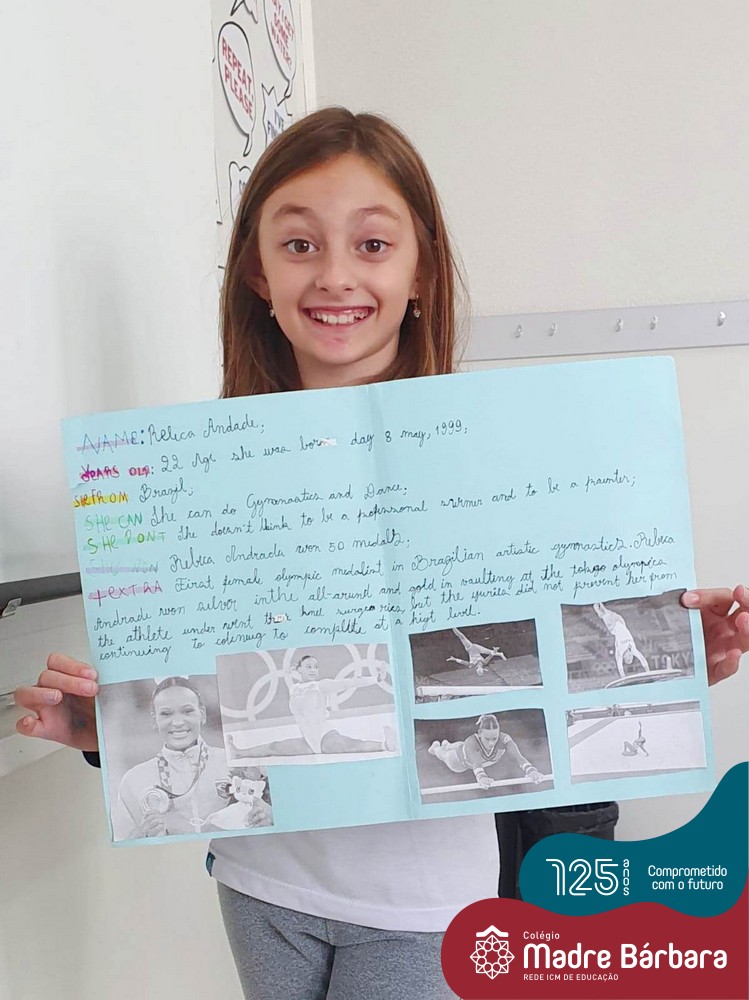 REPEAT,
PLEASE
NAME: Rebeca Andade;
YEARS OLD: 22 Age she was born day 8 may, 1999;
SHE FROM Brazil;
SHE CAN She can do Gymnastics and Dance;
SHE DONT She doesn't think to be a professional swimer and to be a painter;
Rebeca Andrade won 50 medals;
TEXTRA First female olympic medalist in Brazilian artistic gymnastics. Rebeca
Andrade won silver in the all-around and gold in vaulting at the tokyo olympics
the athlete under went knee surgeries, but the did not prevent her from
continuing to to complete at a level.
TOKYO
125 anos
Comprometido
com o futuro
Colégio
Madre Bárbara
REDE ICM DE EDUCAÇÃO